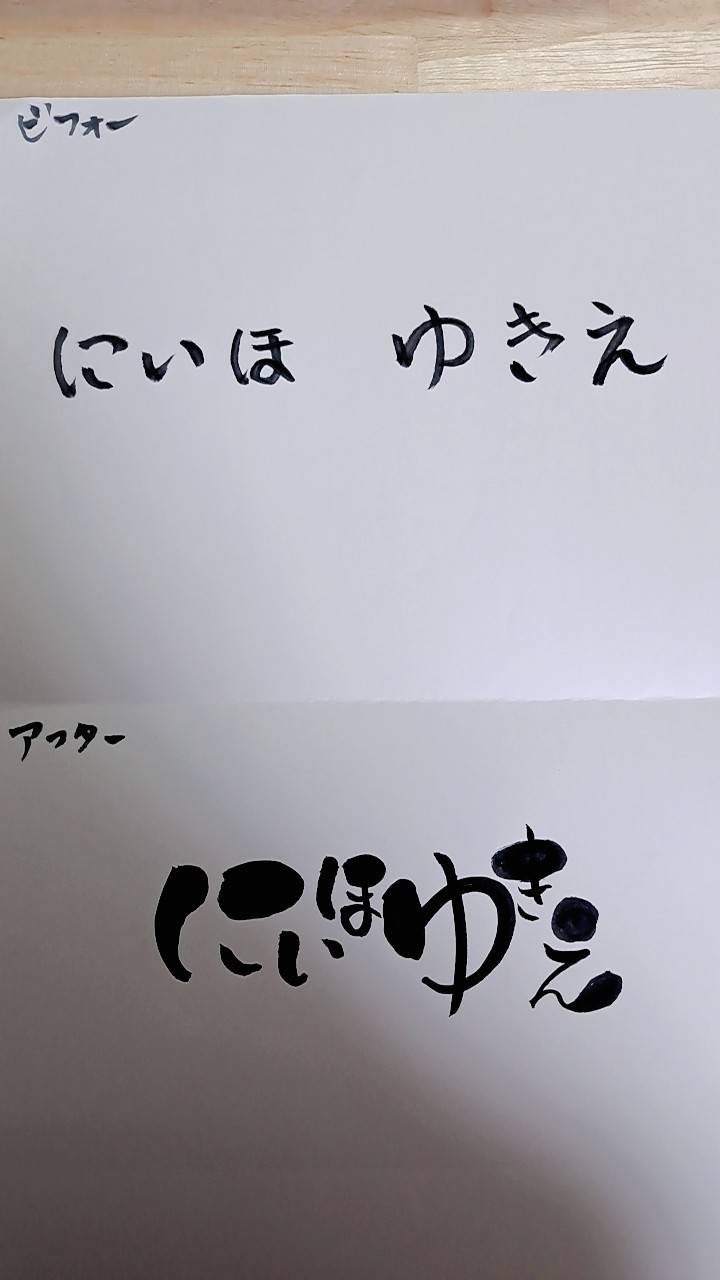 ビフォー
にいほ ゆきえ
アフター
にいほゆきえ